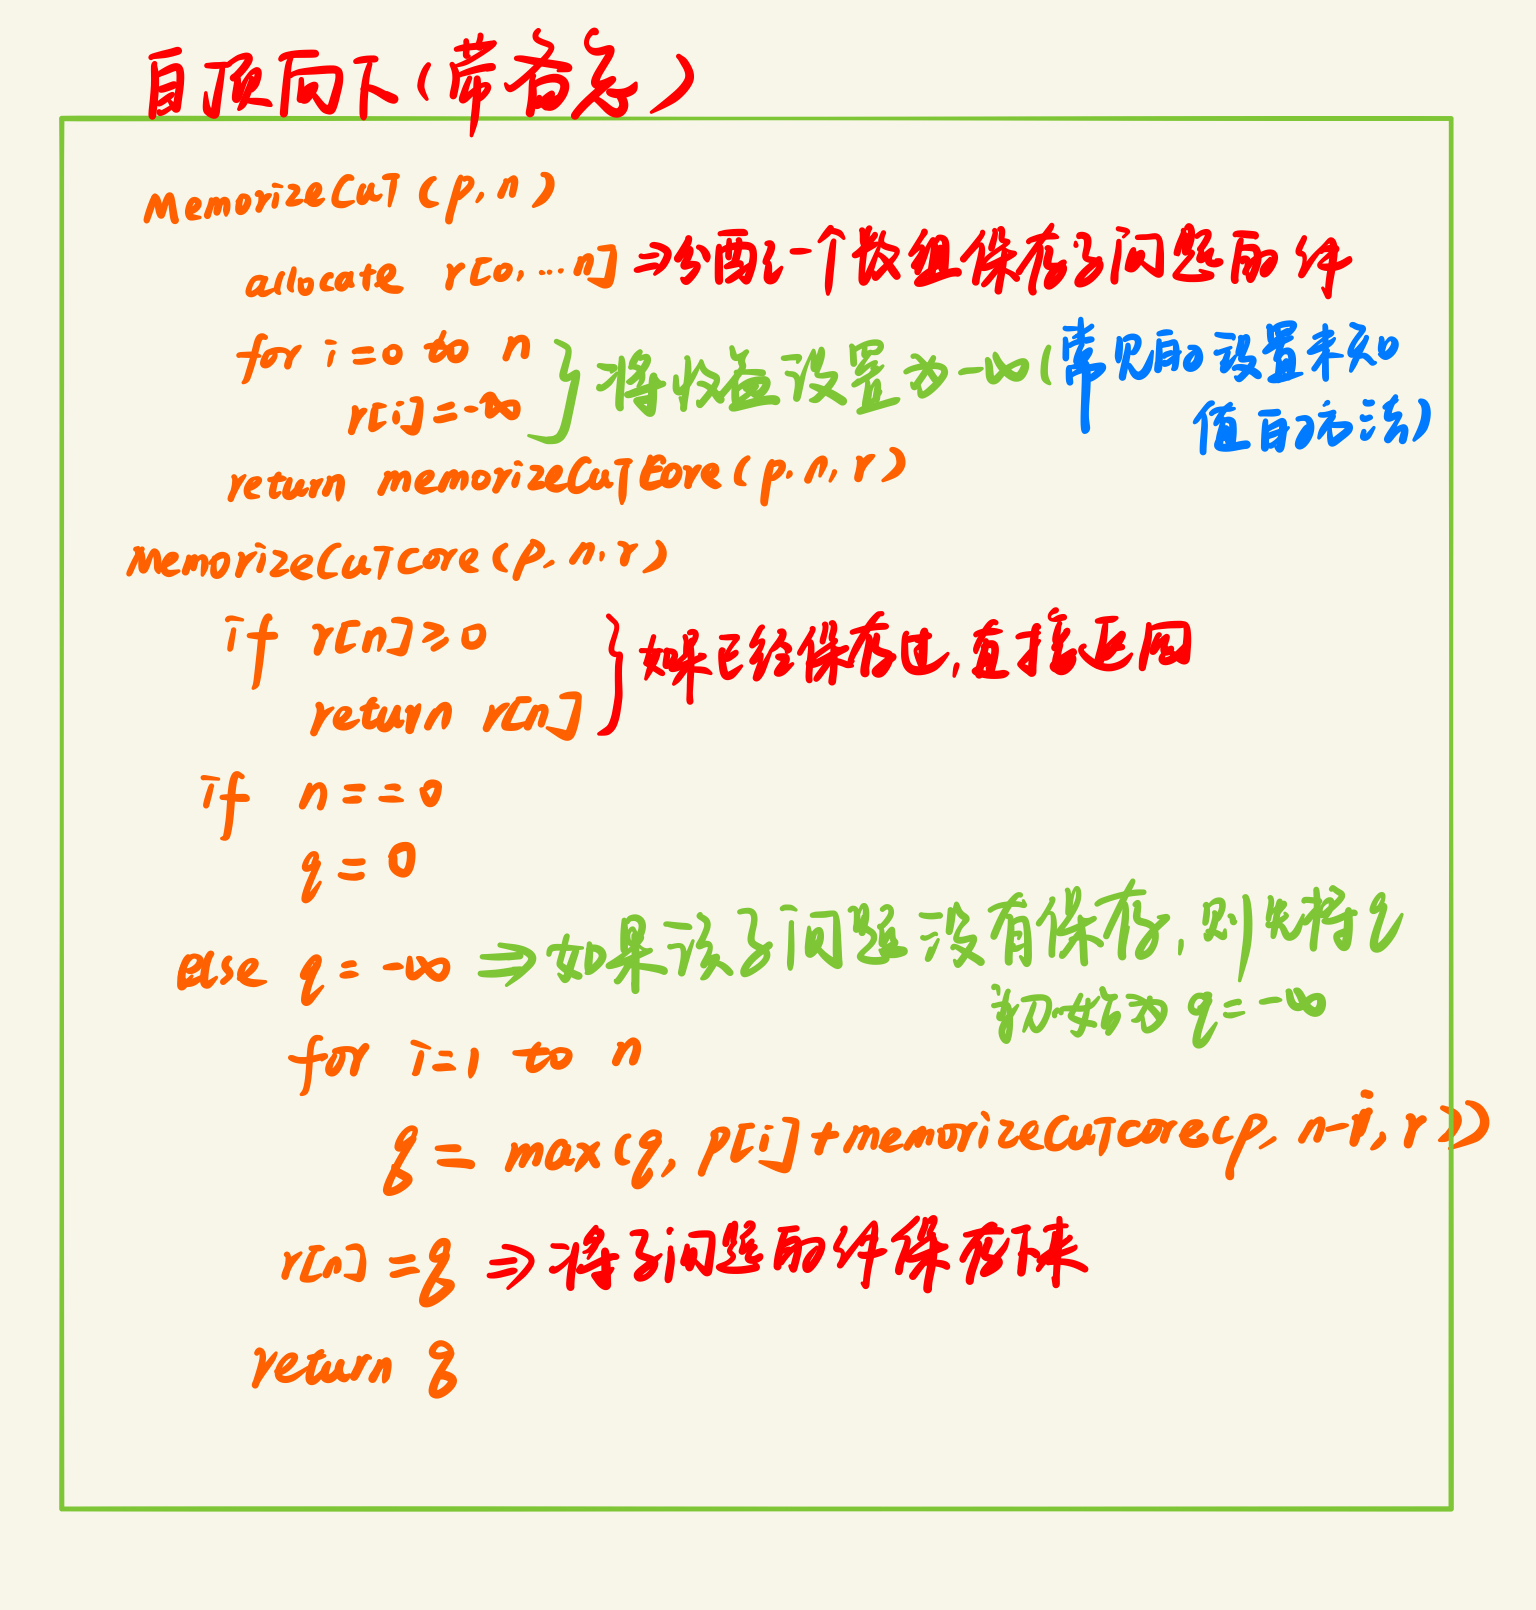 自顶向下(带备忘)
MemorizeCuT(p,n)
allocate r[0,...n] ⇒分配了一个数组保存子问题的解
for i=0 to n
r[i]=-∞ } 将收益设置为-∞(常见的设置未知
值的方法)
return memorizeCuTCore(p.n,r)
MemorizeCuTcore(p,n,r)
if r[n]≥0
return r[n] } 如果已经保存过,直接返回
if n==0
q=0
else q=-∞ ⇒如果该子问题没有保存,则先将q
初始为q=-∞
for i=1 to n
q=max(q,p[i]+memorizeCuTcore(p,n-i,r))
r[n]=q ⇒将子问题的解保存下来
return q